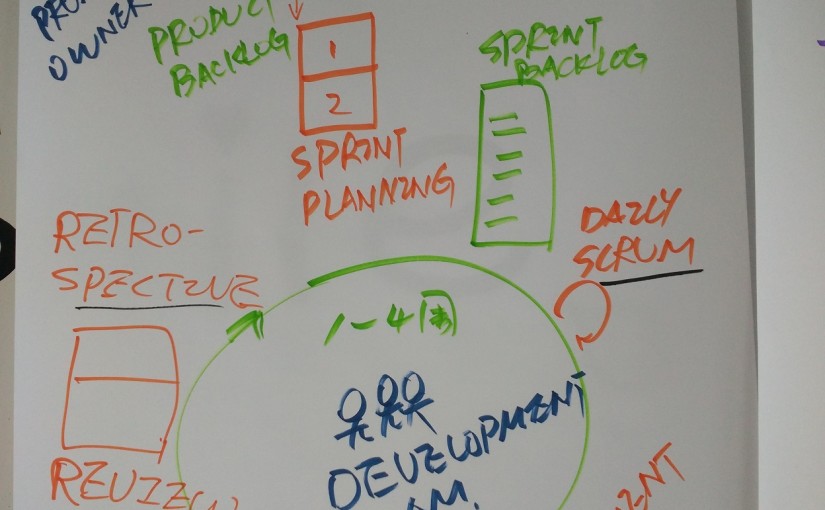 OWNER
PRODUCT
BACKLOG
1
2
SPRINT
PLANNING
SPRINT
BACKLOG
DAILY
SCRUM
RETRO-
SPECTIVE
1-4周
DEVELOPMENT
REVIEW